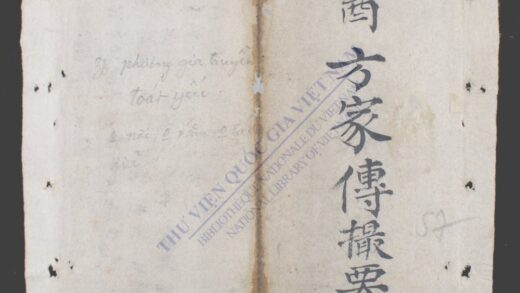 方家傳撮要
Y phương gia truyền
toát yếu.
THƯ VIỆN QUỐC GIA VIỆT NAM
BIBLIOTHÈQUE NATIONALE DU VIETNAM
NATIONAL LIBRARY OF VIETNAM
57